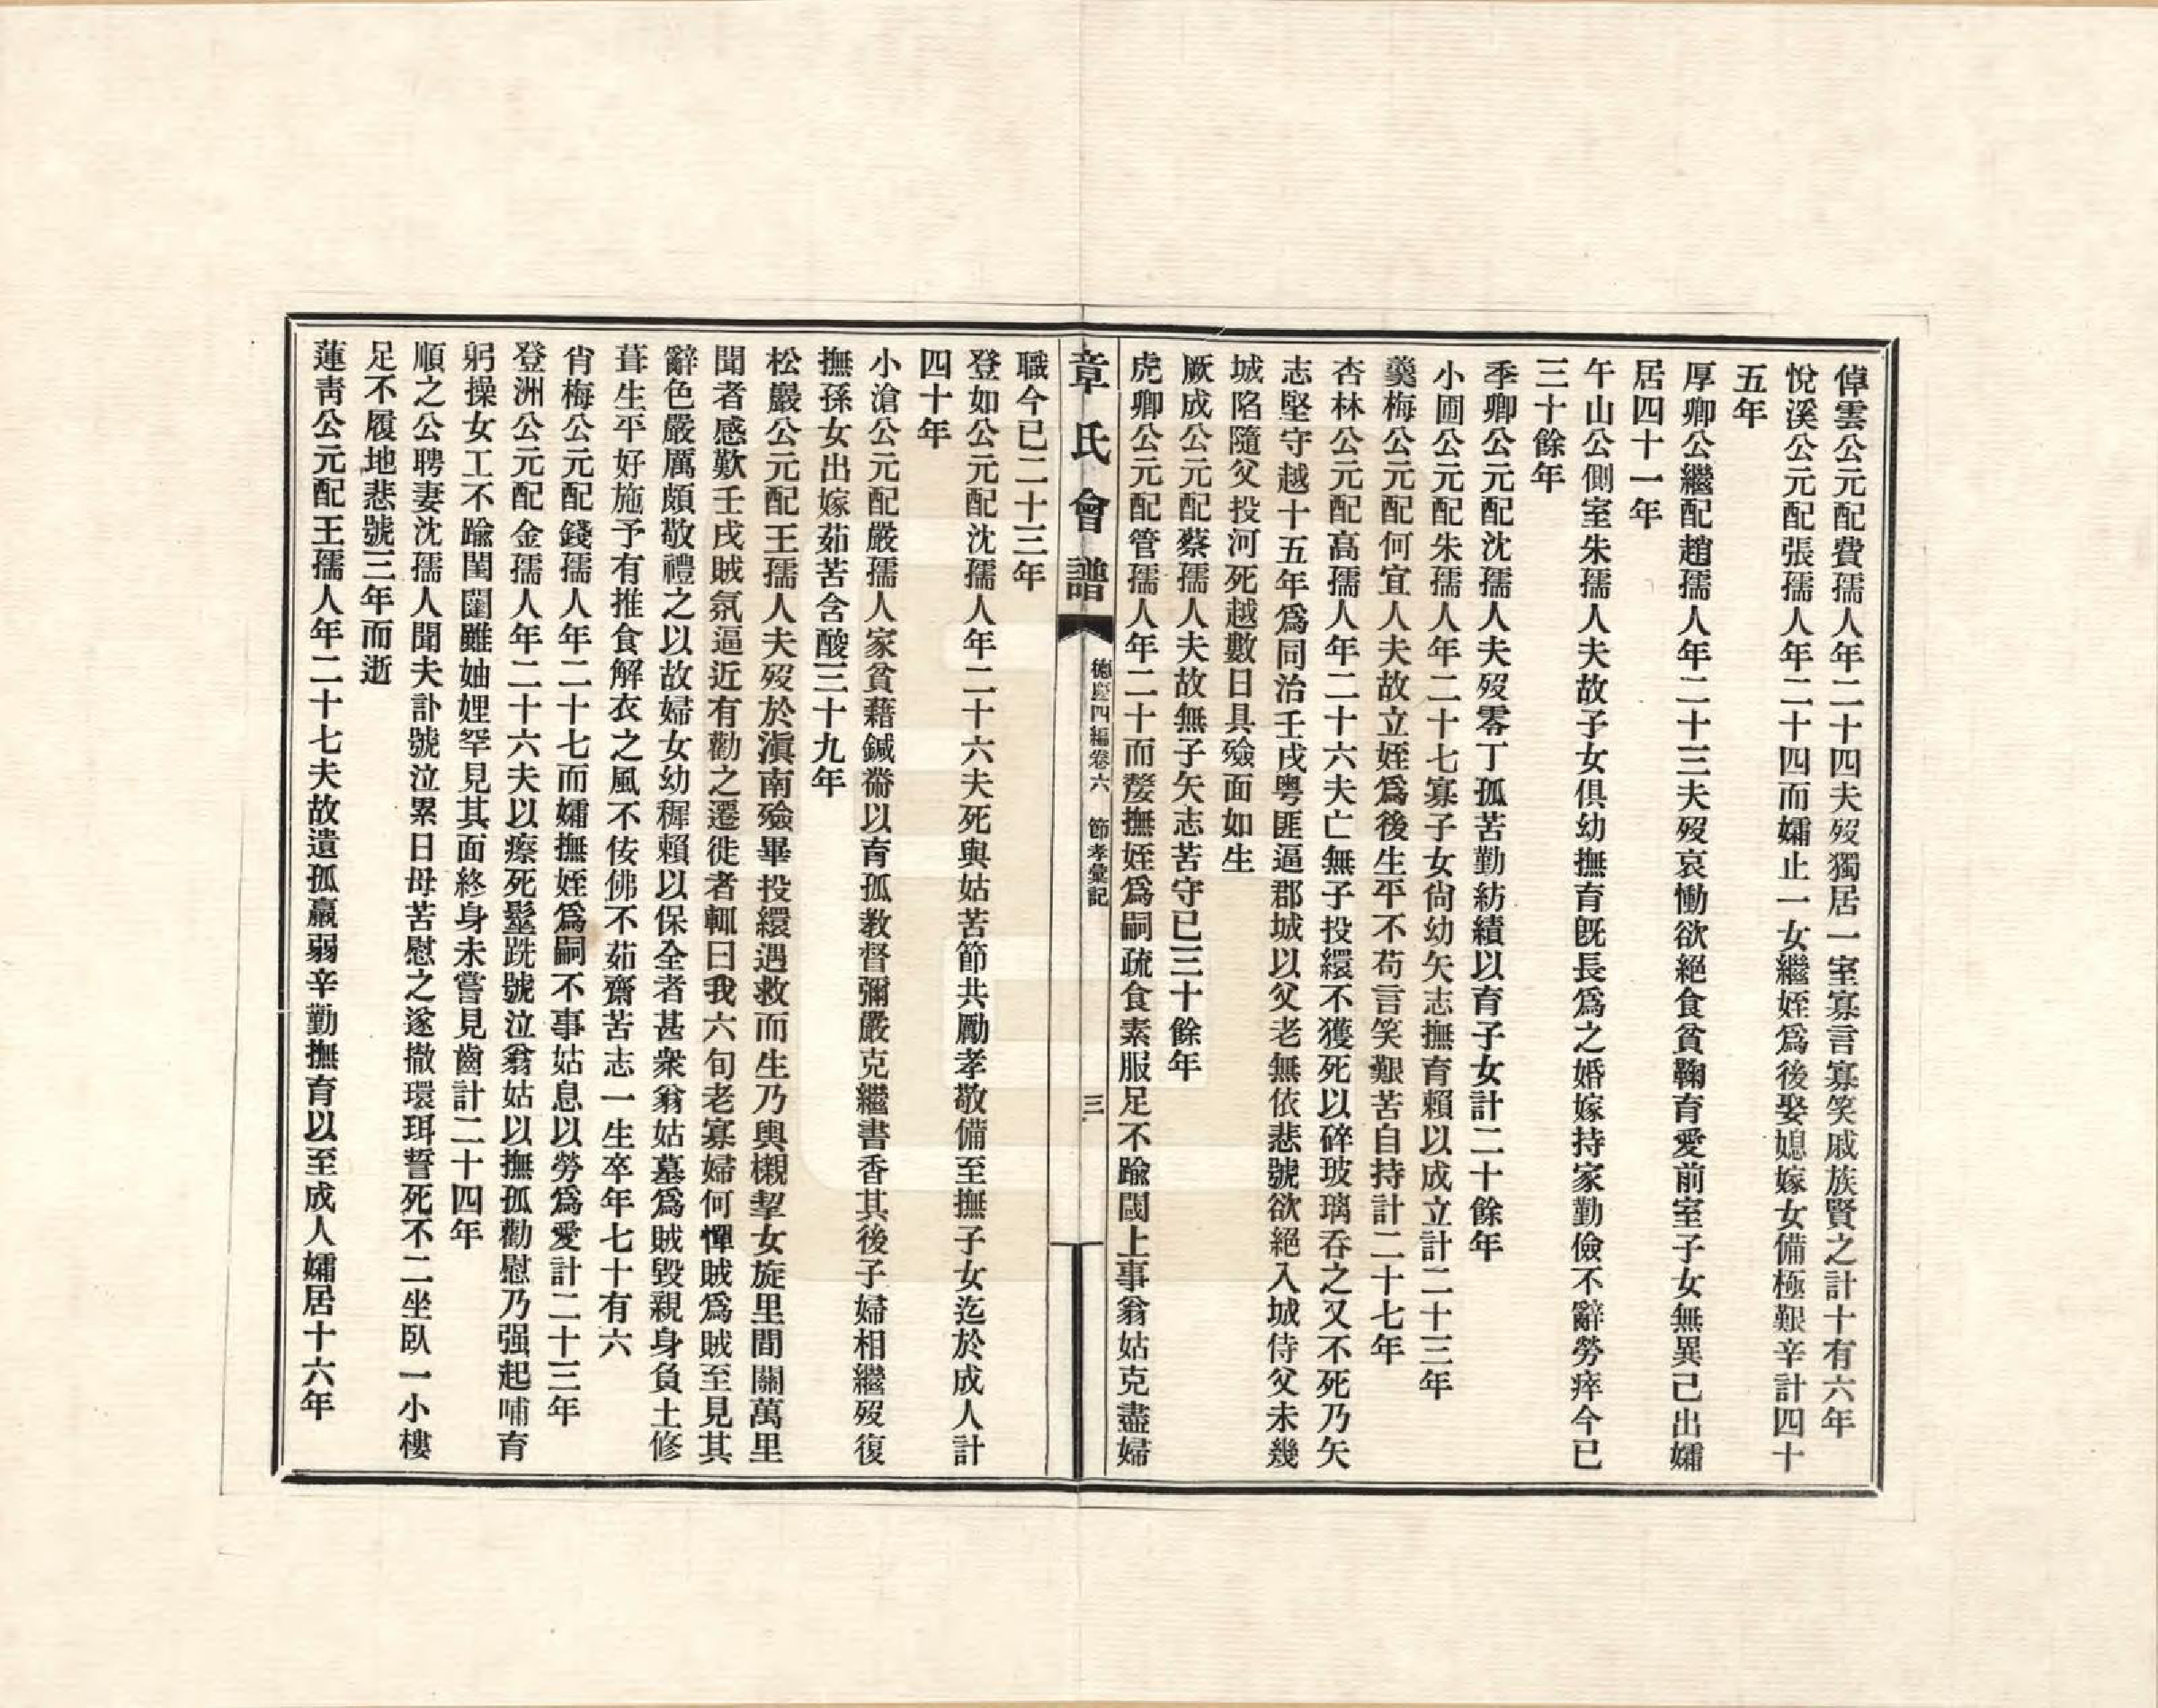 倬雲公元配費孺人年二十四夫歿獨居一室寡言寡笑戚族賢之計十有六年
悅溪公元配張孺人年二十四而孀止一女繼姪爲後娶媳嫁女備極艱辛計四十
五年
厚卿公繼配趙孺人年二十三夫歿哀慟欲絕食貧鞠育愛前室子女無異己出孀
居四十一年
午山公側室朱孺人夫故子女俱幼撫育旣長爲之婚嫁持家勤儉不辭勞瘁今已
三十餘年
季卿公元配沈孺人夫歿零丁孤苦勤紡績以育子女計二十餘年
小圃公元配朱孺人年二十七寡子女尙幼矢志撫育賴以成立計二十三年
羹梅公元配何宜人夫故立姪爲後生平不苟言笑艱苦自持計二十七年
杏林公元配高孺人年二十六夫亡無子投繯不獲死以碎玻璃呑之又不死乃矢
志堅守越十五年爲同治壬戌粵匪逼郡城以父老無依悲號欲絕入城侍父未幾
城陷隨父投河死越數日具殮面如生
厥成公元配蔡孺人夫故無子矢志苦守已三十餘年
虎卿公元配管孺人年二十而嫠撫姪爲嗣疏食素服足不踰閾上事翁姑克盡婦
章氏會譜
德慶四編卷六 節孝彙記
三
職今已二十三年
登如公元配沈孺人年二十六夫死與姑苦節共勵孝敬備至撫子女迄於成人計
四十年
小滄公元配嚴孺人家貧藉鍼黹以育孤教督彌嚴克繼書香其後子婦相繼歿復
撫孫女出嫁茹苦含酸三十九年
松巖公元配王孺人夫歿於滇南殮畢投繯遇救而生乃輿櫬挈女旋里間關萬里
聞者感歎壬戌賊氛逼近有勸之遷徙者輒曰我六旬老寡婦何憚賊爲賊至見其
辭色嚴厲頗敬禮之以故婦女幼穉賴以保全者甚衆翁姑墓爲賊毀親身負土修
葺生平好施予有推食解衣之風不佞佛不茹齋苦志一生卒年七十有六
肖梅公元配錢孺人年二十七而孀撫姪爲嗣不事姑息以勞爲愛計二十三年
登洲公元配金孺人年二十六夫以瘵死髽跣號泣翁姑以撫孤勸慰乃强起哺育
躬操女工不踰閨闥雖妯娌罕見其面終身未嘗見齒計二十四年
順之公聘妻沈孺人聞夫訃號泣累日母苦慰之遂撤環珥誓死不二坐臥一小樓
足不履地悲號三年而逝
蓮靑公元配王孺人年二十七夫故遺孤羸弱辛勤撫育以至成人孀居十六年